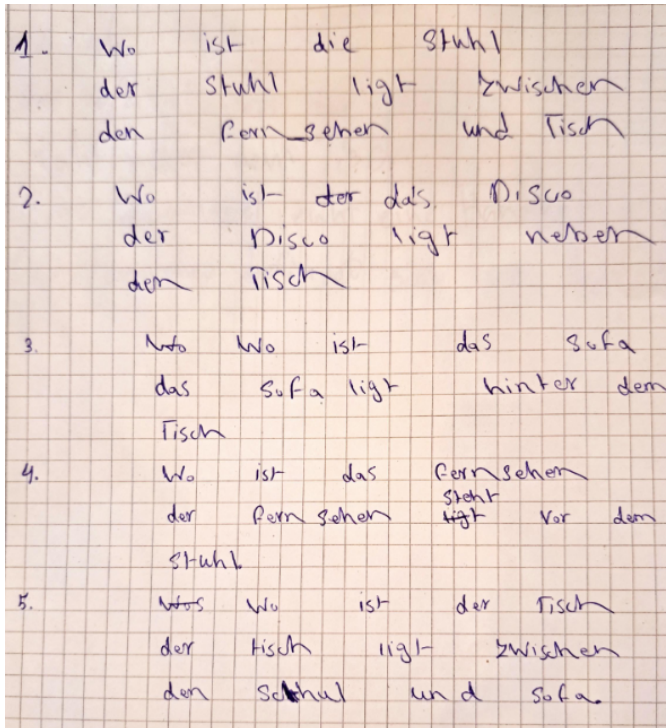 1. Wo ist die Stuhl
der Stuhl ligt zwischen
den fern_sehen und Tisch
2. Wo ist der das Disco
der Disco ligt neben
dem Tisch
3. Wo Wo ist das Sofa
das Sofa ligt hinter dem
Tisch
4. Wo ist das fernsehen
der fernsehen ligt steht vor dem
Stuhl.
5. Wos Wo ist der Tisch
der tisch ligt zwischen
den Schhul und Sofa.